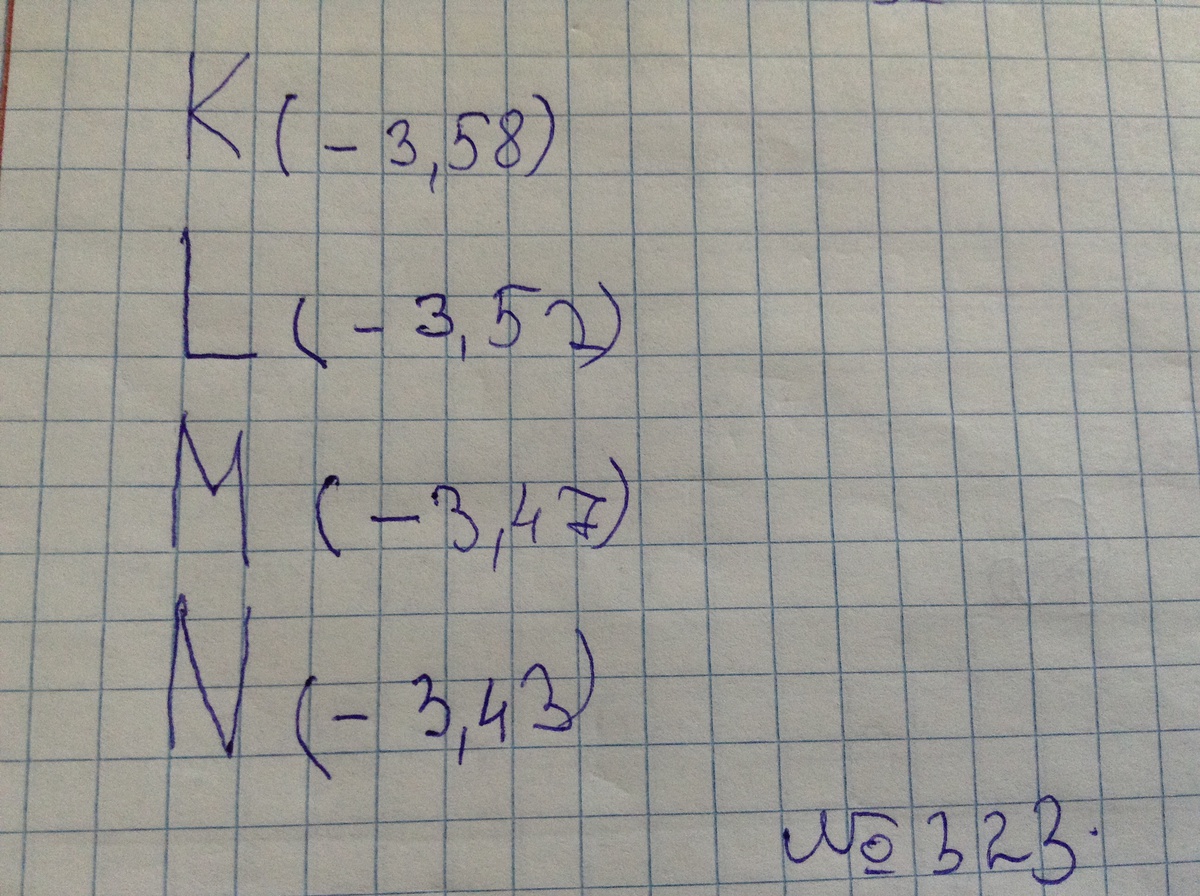 K (-3,58)
L (-3,52)
M (-3,47)
N (-3,43)
№ 323.